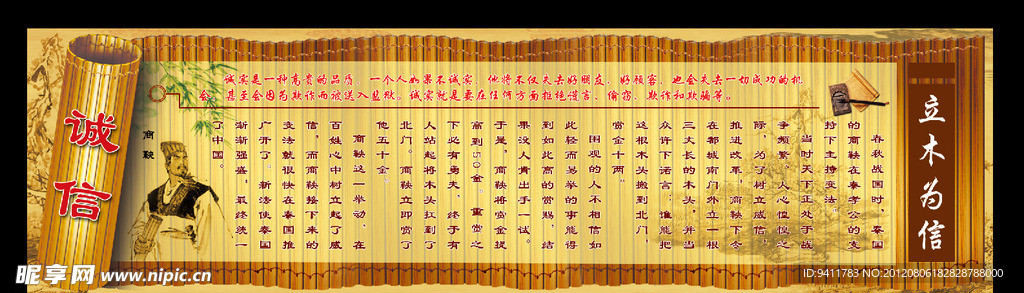 诚信
诚实是一种高贵的品质，一个人如果不诚实，他将不仅失去好朋友、好顾客，也会失去一切成功的机
会，甚至会因为欺诈而被送入监狱。诚实就是要在任何方面拒绝谎言、偷窃、欺诈和欺骗等。
立木为信
春秋战国时，秦国
的商鞅在秦孝公的支
持下主持变法。
当时天下正处于战
争频繁，人心惶惶之
际，为了树立威信，
推进改革，商鞅下令
在都城南门外立一根
三丈长的木头，并当
众许下诺言：谁能把
这根木头搬到北门，
赏金十两。
围观的人不相信如
此轻而易举的事能得
到如此高的赏赐，结
果没人肯出手一试。
于是，商鞅将赏金提
高到50金。重赏之
下必有勇夫，终于有
人站起将木头扛到了
北门。商鞅立即赏了
他五十金。
商鞅这一举动，在
百姓心中树立起了威
信，而商鞅接下来的
变法就很快在秦国推
广开了。新法使秦国
渐渐强盛，最终统一
了中国。
商鞅
昵享网 www.nipic.cn
ID:9411783 NO:20120806182828788000